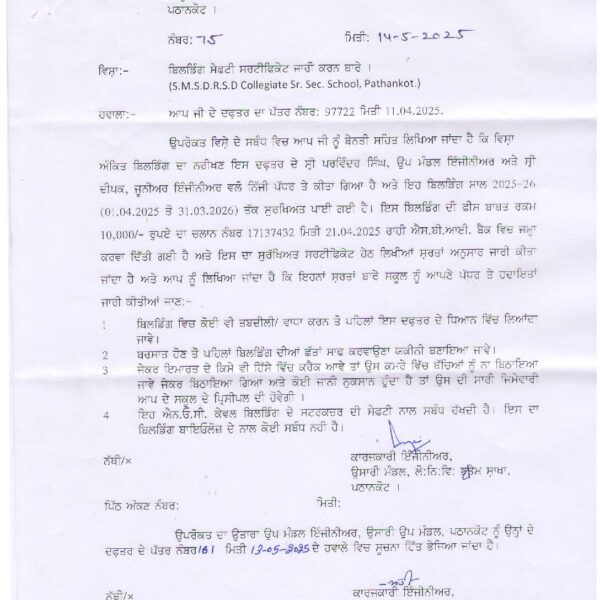 ਪਠਾਨਕੋਟ ।
ਨੰਬਰ: 75 ਮਿਤੀ: 14-5-2025
ਵਿਸ਼ਾ:- ਬਿਲਡਿੰਗ ਸੇਫਟੀ ਸਰਟੀਫਿਕੇਟ ਜਾਰੀ ਕਰਨ ਬਾਰੇ ।
(S.M.S.D.R.S.D Collegiate Sr. Sec. School, Pathankot.)
ਹਵਾਲਾ:- ਆਪ ਜੀ ਦੇ ਦਫਤਰ ਦਾ ਪੱਤਰ ਨੰਬਰ: 97722 ਮਿਤੀ 11.04.2025.
ਉਪਰੋਕਤ ਵਿਸ਼ੇ ਦੇ ਸਬੰਧ ਵਿਚ ਆਪ ਜੀ ਨੂੰ ਬੇਨਤੀ ਸਹਿਤ ਲਿਖਿਆ ਜਾਂਦਾ ਹੈ ਕਿ ਵਿਸ਼ਾ
ਅੰਕਿਤ ਬਿਲਡਿੰਗ ਦਾ ਨਰੀਖਣ ਇਸ ਦਫਤਰ ਦੇ ਸ੍ਰੀ ਪਰਵਿੰਦਰ ਸਿੰਘ, ਉਪ ਮੰਡਲ ਇੰਜੀਨੀਅਰ ਅਤੇ ਸ੍ਰੀ
ਦੀਪਕ, ਜੂਨੀਅਰ ਇੰਜੀਨੀਅਰ ਵਲੋ ਨਿੱਜੀ ਪੱਧਰ ਤੇ ਕੀਤਾ ਗਿਆ ਹੈ ਅਤੇ ਇਹ ਬਿਲਡਿੰਗ ਸਾਲ 2025-26
(01.04.2025 ਤੋ 31.03.2026) ਤੱਕ ਸੁਰਖਿਅਤ ਪਾਈ ਗਈ ਹੈ। ਇਸ ਬਿਲਡਿੰਗ ਦੀ ਫੀਸ ਬਾਬਤ ਰਕਮ
10,000/- ਰੁਪਏ ਦਾ ਚਲਾਨ ਨੰਬਰ 17137432 ਮਿਤੀ 21.04.2025 ਰਾਹੀ ਐਸ.ਬੀ.ਆਈ. ਬੈਂਕ ਵਿਚ ਜਮ੍ਹਾ
ਕਰਵਾ ਦਿੱਤੀ ਗਈ ਹੈ ਅਤੇ ਇਸ ਦਾ ਸੁਰੱਖਿਅਤ ਸਰਟੀਫਿਕੇਟ ਹੇਠ ਲਿਖੀਆਂ ਸ਼ਰਤਾਂ ਅਨੁਸਾਰ ਜਾਰੀ ਕੀਤਾ
ਜਾਂਦਾ ਹੈ ਅਤੇ ਆਪ ਨੂੰ ਲਿਖਿਆ ਜਾਂਦਾ ਹੈ ਕਿ ਇਹਨਾਂ ਸ਼ਰਤਾਂ ਬਾਰੇ ਸਕੂਲ ਨੂੰ ਆਪਣੇ ਪੱਧਰ ਤੇ ਹਦਾਇਤਾਂ
ਜਾਰੀ ਕੀਤੀਆਂ ਜਾਣ:-
1 ਬਿਲਡਿੰਗ ਵਿਚ ਕੋਈ ਵੀ ਤਬਦੀਲੀ/ ਵਾਧਾ ਕਰਨ ਤੋ ਪਹਿਲਾਂ ਇਸ ਦਫਤਰ ਦੇ ਧਿਆਨ ਵਿੱਚ ਲਿਆਂਦਾ
ਜਾਵੇ।
2 ਬਰਸਾਤ ਹੋਣ ਤੋ ਪਹਿਲਾਂ ਬਿਲਡਿੰਗ ਦੀਆਂ ਛੱਤਾਂ ਸਾਫ ਕਰਵਾਉਣਾ ਯਕੀਨੀ ਬਣਾਇਆ ਜਾਵੇ।
3 ਜੇਕਰ ਇਮਾਰਤ ਦੇ ਕਿਸੇ ਵੀ ਹਿੱਸੇ ਵਿੱਚ ਕਰੈਕ ਆਵੇ ਤਾਂ ਉਸ ਕਮਰੇ ਵਿੱਚ ਬੱਚਿਆਂ ਨੂੰ ਨਾ ਬਿਠਾਇਆ
ਜਾਵੇ ਜੇਕਰ ਬਿਠਾਇਆ ਗਿਆ ਅਤੇ ਕੋਈ ਜਾਨੀ ਨੁਕਸਾਨ ਹੁੰਦਾ ਹੈ ਤਾਂ ਉਸ ਦੀ ਸਾਰੀ ਜਿਮੇਵਾਰੀ
ਆਪ ਦੇ ਸਕੂਲ ਦੇ ਪ੍ਰਿਸੀਪਲ ਦੀ ਹੋਵੇਗੀ ।
4 ਇਹ ਐਨ.ਓ.ਸੀ. ਕੇਵਲ ਬਿਲਡਿੰਗ ਦੇ ਸਟਰਕਚਰ ਦੀ ਸੇਫਟੀ ਨਾਲ ਸਬੰਧ ਰੱਖਦੀ ਹੈ। ਇਸ ਦਾ
ਬਿਲਡਿੰਗ ਬਾਇਓਲੋਜ਼ ਦੇ ਨਾਲ ਕੋਈ ਸਬੰਧ ਨਹੀ ਹੈ।
ਨੱਥੀ/× ਕਾਰਜਕਾਰੀ ਇੰਜੀਨੀਅਰ,
ਉਸਾਰੀ ਮੰਡਲ, ਲੋ:ਨਿ:ਵਿ: ਭ:ਤੇਮ ਸ਼ਾਖਾ,
ਪਠਾਨਕੋਟ ।
ਪਿੱਠ ਅੰਕਣ ਨੰਬਰ: ਮਿਤੀ:
ਉਪਰੋਕਤ ਦਾ ਉਤਾਰਾ ਉਪ ਮੰਡਲ ਇੰਜੀਨੀਅਰ, ਉਸਾਰੀ ਉਪ ਮੰਡਲ, ਪਠਾਨਕੋਟ ਨੂੰ ਉਨ੍ਹਾਂ ਦੇ
ਦਫਤਰ ਦੇ ਪੱਤਰ ਨੰਬਰ 161 ਮਿਤੀ 13-05-2025 ਦੇ ਹਵਾਲੇ ਵਿਚ ਸੂਚਨਾ ਹਿੱਤ ਭੇਜਿਆ ਜਾਂਦਾ ਹੈ।
ਨੱਥੀ/× ਕਾਰਜਕਾਰੀ ਇੰਜੀਨੀਅਰ,